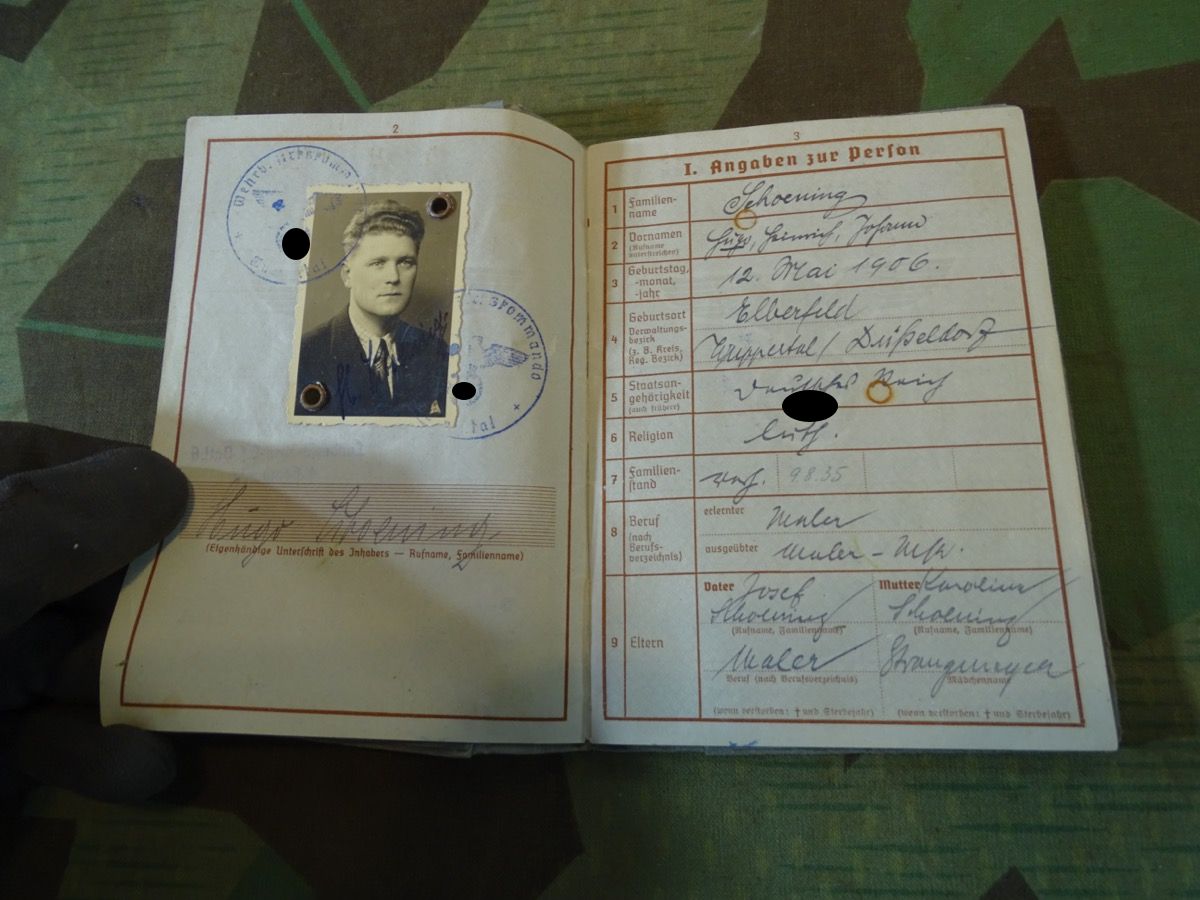 2
Wehrb.
Wuppertal
Kommando
Hugo Schoening
(Eigenhändige Unterschrift des Inhabers — Rufname, Familienname)
3
I. Angaben zur Person
1 Familien-
name
Schoening
2 Vornamen
(Rufname
unterstreichen)
Hugo, Heinrich, Johann
3 Geburtstag,
-monat,
-jahr
12. Mai 1906.
4 Geburtsort
Verwaltungs-
bezirk
(z. B. Kreis,
Reg. Bezirk)
Elberfeld
Wuppertal / Düsseldorf
5 Staatsan-
gehörigkeit
(auch frühere)
Deutsches Reich
6 Religion
luth.
7 Familien-
stand
verh. 9.8.35
8 Beruf
(nach
Berufs-
verzeichnis)
erlernter
Maler
ausgeübter
Maler-
9 Eltern
Vater Josef
Schoening
(Rufname, Familienname)
Maler
Beruf (nach Berufsverzeichnis)
(wenn verstorben: † und Sterbejahr)
Mutter Karoline
Schoening
(Rufname, Familienname)
Mädchenname
(wenn verstorben: † und Sterbejahr)